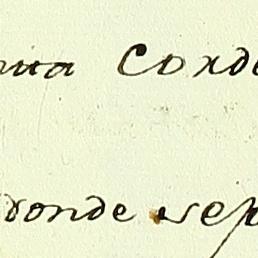 Conde
donde sep